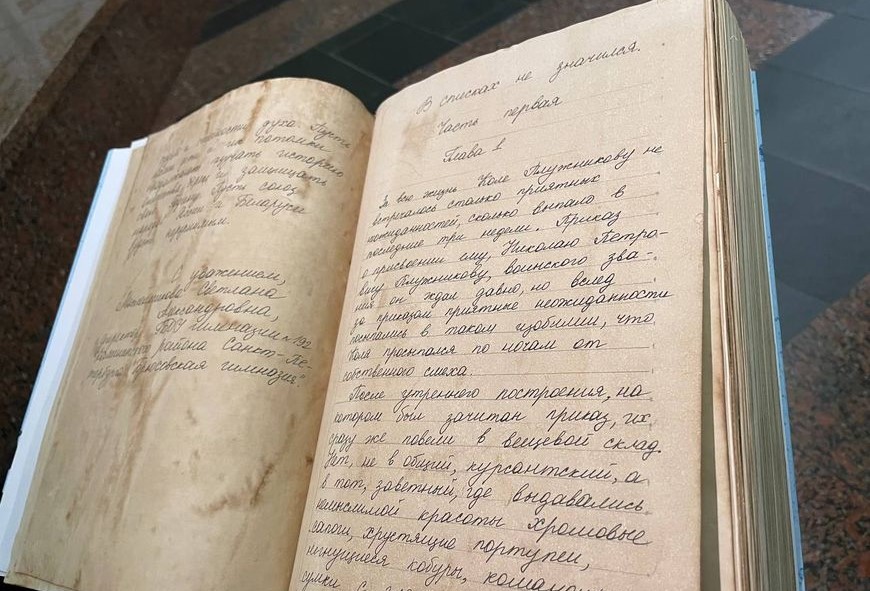 духа. Пусть
потомки
изучать историю
и защищать
Пусть союз
и Беларуси
будет крепким.
С уважением,
Светлана
Александровна,
директор ГБОУ гимназии № 192
Калининского района Санкт-Пе-
тербурга "Брюсовская гимназия".
В списках не значился.
Часть первая
Глава 1
За всю жизнь Коле Плужникову не
встречалось столько приятных
неожиданностей, сколько выпало в
последние три недели. Приказ
о присвоении ему, Николаю Петро-
вичу Плужникову, воинского зва-
ния он ждал давно, но вслед
за приказом приятные неожиданности
посыпались в таком изобилии, что
Коля просыпался по ночам от
собственного смеха.
После утреннего построения, на
котором был зачитан приказ, их
сразу же повели в вещевой склад.
Нет, не в общий, курсантский, а
в тот, заветный, где выдавались
немыслимой красоты хромовые
сапоги, хрустящие портупеи,
негнущиеся кобуры,
сумки